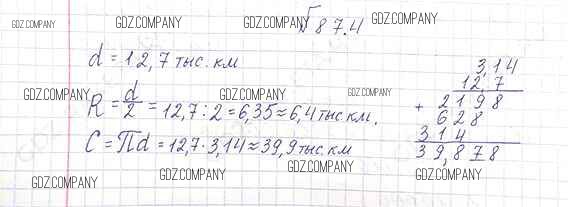 № 87.4
GDZ.COMPANY GDZ.COMPANY GDZ.COMPANY GDZ.COMPANY
d = 12,7 тыс. км
R = d/2 = 12,7 : 2 = 6,35 ≈ 6,4 тыс км.
GDZ.COMPANY GDZ.COMPANY GDZ.COMPANY GDZ.COMPANY
C = Пd = 12,7 · 3,14 ≈ 39,9 тыс. км
3,14
12,7
+ 2198
628
314
39,878
GDZ.COMPANY GDZ.COMPANY GDZ.COMPANY GDZ.COMPANY